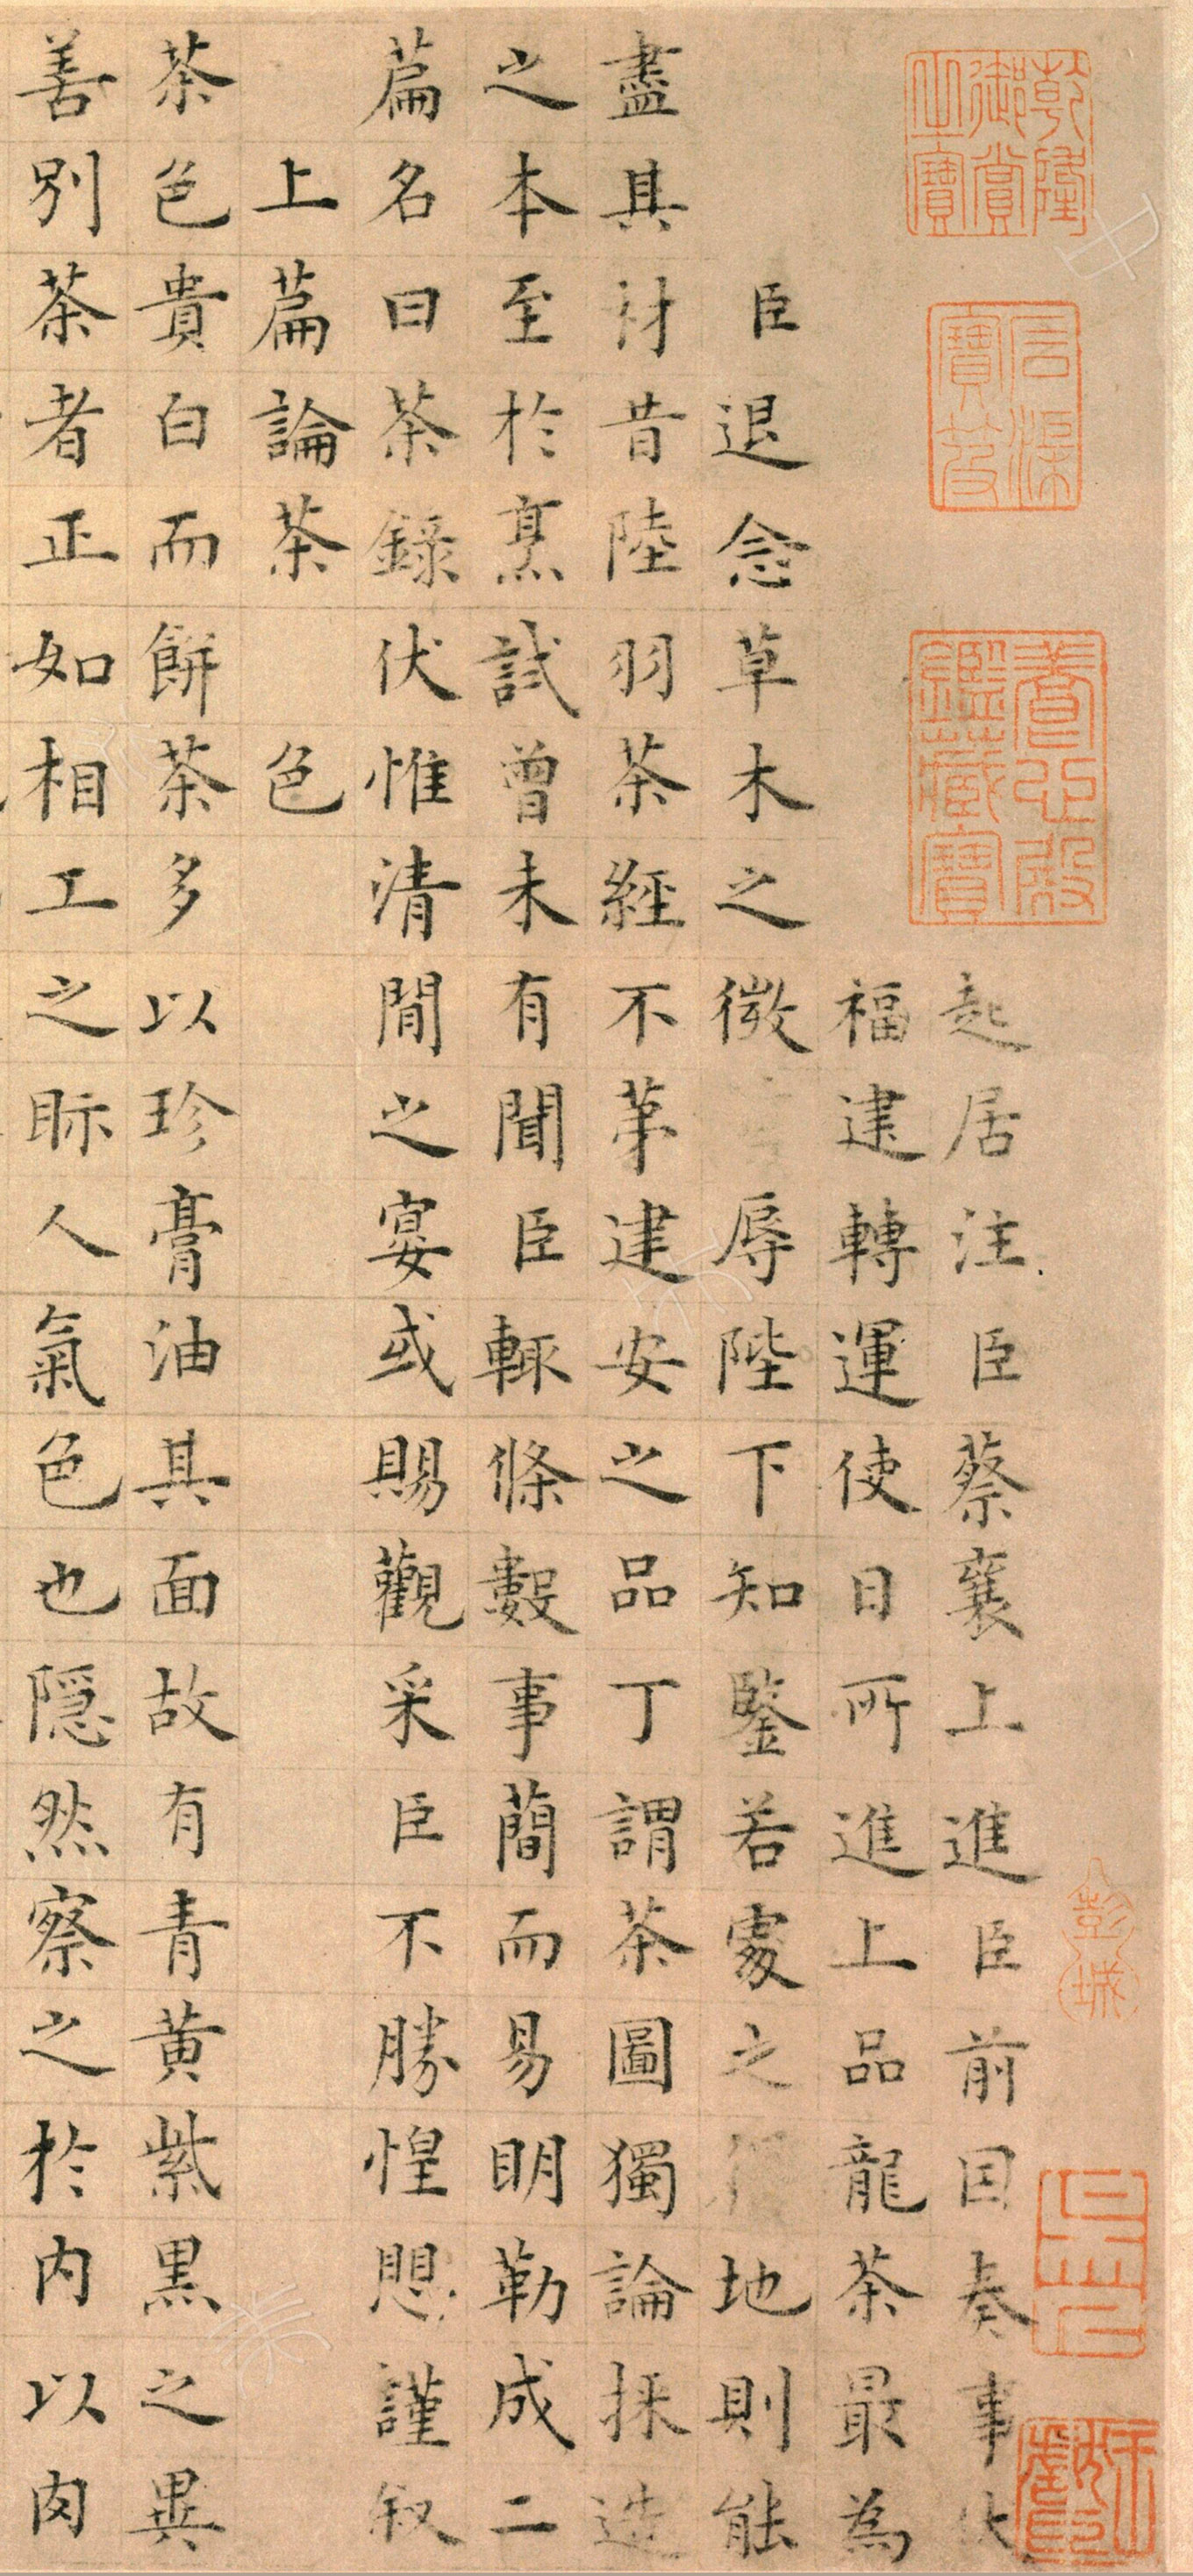 乾隆御賞之寶
石渠寶笈
養心殿鑑藏寶
彭城
起居注臣蔡襄上進臣前因奏事伏
福建轉運使日所進上品龍茶最為
臣退念草木之微辱陛下知鑒若處之地則能
盡其材昔陸羽茶經不第建安之品丁謂茶圖獨論採造
之本至於烹試曾未有聞臣輒條數事簡而易明勒成二
篇名曰茶錄伏惟清閒之宴或賜觀采臣不勝惶懼謹叙
上篇論茶 色
茶色貴白而餅茶多以珍膏油其面故有青黃紫黑之異
善別茶者正如相工之眎人氣色也隱然察之於內以肉